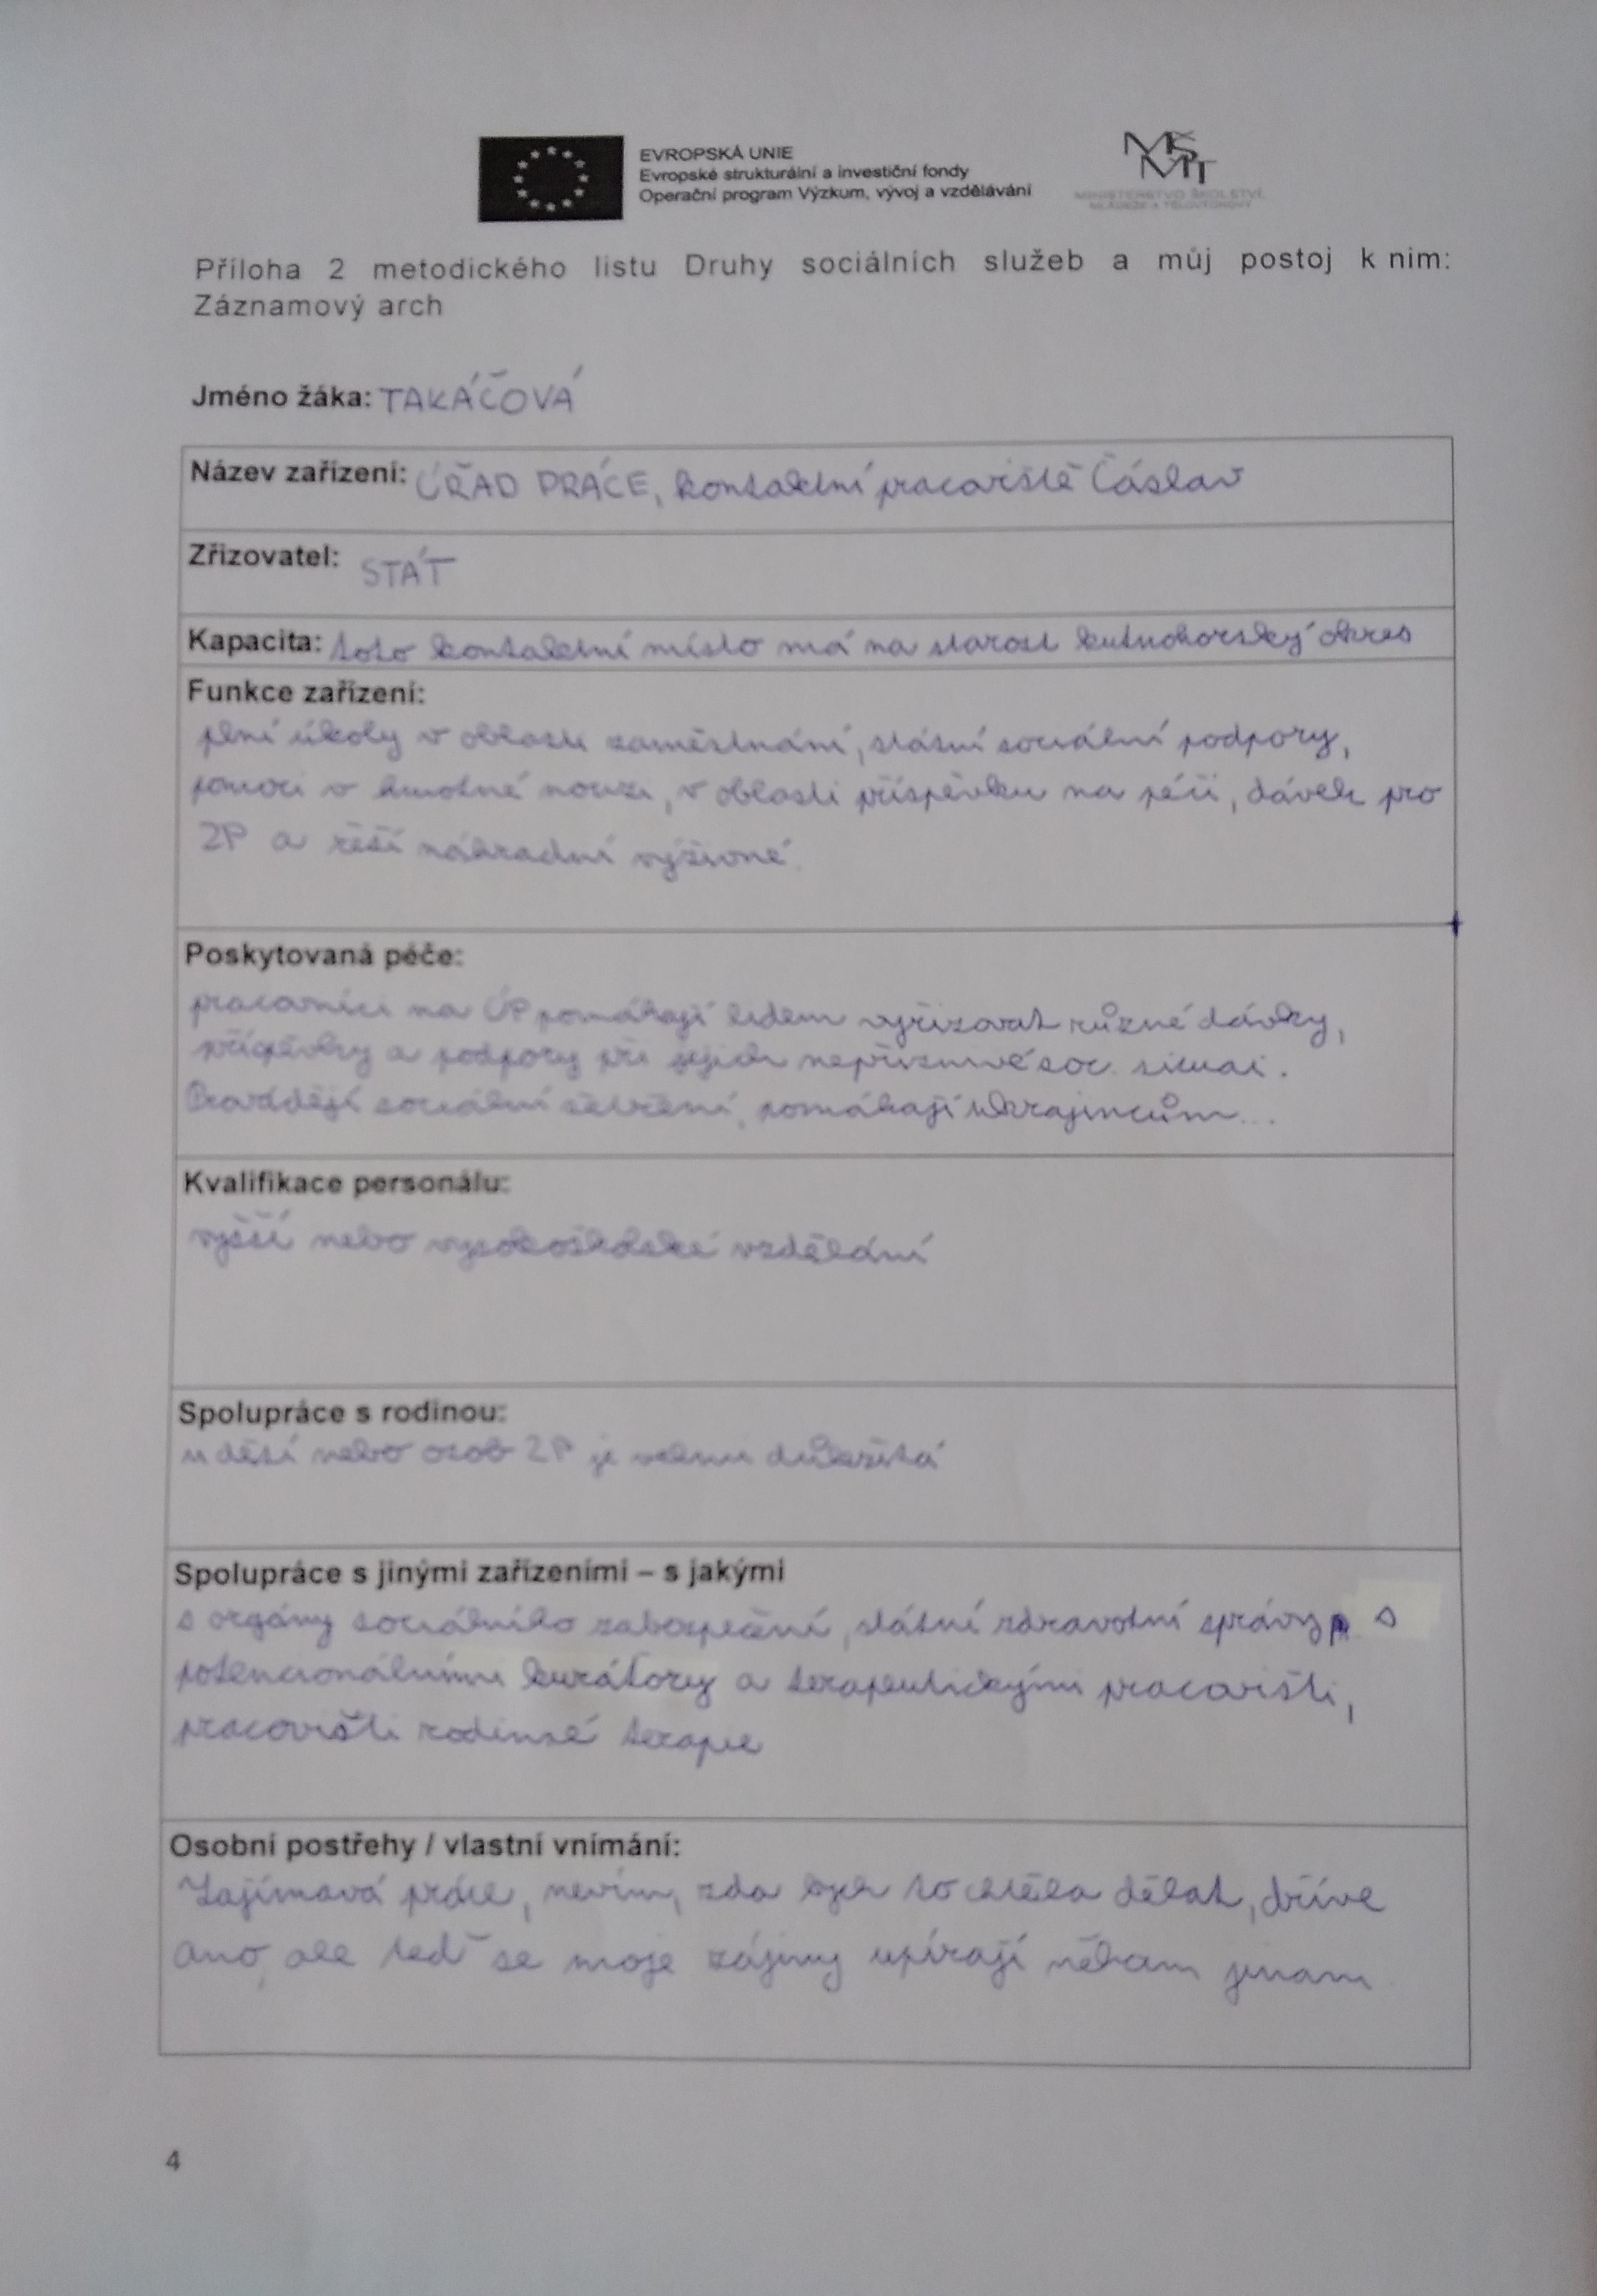 EVROPSKÁ UNIE
Evropské strukturální a investiční fondy
Operační program Výzkum, vývoj a vzdělávání
MŠMT
MINISTERSTVO ŠKOLSTVÍ,
MLÁDEŽE A TĚLOVÝCHOVY
Příloha 2 metodického listu Druhy sociálních služeb a můj postoj k nim:
Záznamový arch
Jméno žáka: TAKÁČOVÁ
Název zařízení: ÚŘAD PRÁCE, kontaktní pracoviště Čáslav
Zřizovatel: STÁT
Kapacita: toto kontaktní místo má na starost kutnohorský okres
Funkce zařízení:
plní úkoly v oblasti zaměstnání, státní sociální podpory,
pomoci v hmotné nouzi, v oblasti příspěvku na péči, dávek pro
ZP a řeší náhradní výživné.
Poskytovaná péče:
pracovníci na ÚP pomáhají lidem vyřizovat různé dávky,
příspěvky a podpory při jejich nepříznivé soc. situaci.
Provádějí sociální šetření, pomáhají Ukrajincům...
Kvalifikace personálu:
vyšší nebo vysokoškolské vzdělání
Spolupráce s rodinou:
u dětí nebo osob ZP je velmi důležitá
Spolupráce s jinými zařízeními – s jakými
s orgány sociálního zabezpečení, státní zdravotní správy, s
potencionálními kurátory a terapeutickými pracovišti,
pracovišti rodinné terapie
Osobní postřehy / vlastní vnímání:
Zajímavá práce, nevím, zda bych to chtěla dělat, dříve
ano, ale teď se moje zájmy upírají někam jinam
4